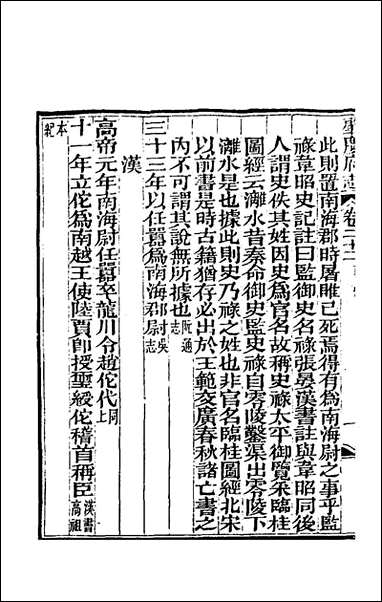 肇慶府志 卷二十二
此則置南海郡時屠睢已死焉得有爲南海尉之事乎監
祿韋昭史記註曰監御史名祿張晏漢書註與韋昭同後
人謂史佚其姓因史爲官名故稱史祿太平御覽采臨桂
圖經云灕水昔秦命御史監史祿自零陵鑿渠出零陵下
灕水是也據此則史乃祿之姓也非官名臨桂圖經北宋
以前書是時古籍猶存必出於王範交廣春秋諸亡書之
内不可謂其說無所據也阮通志
三十三年以任囂爲南海郡尉吳志
漢
高帝元年南海尉任囂卒龍川令趙佗代同上
十一年立佗爲南越王使陸賈卽授璽綬佗稽首稱臣漢書高祖
本紀